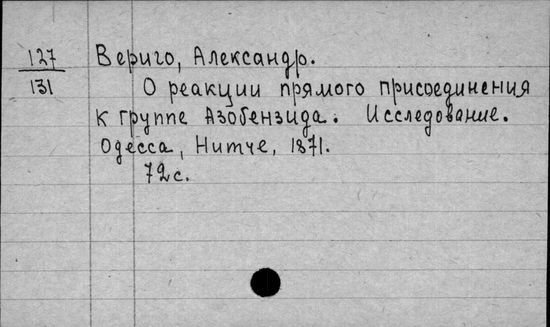 127
131
Вериго, Александр.
О реакции прямого присоединения
к группе Азобензида. Исследование.
Одесса, Нитче, 1871.
72 с.